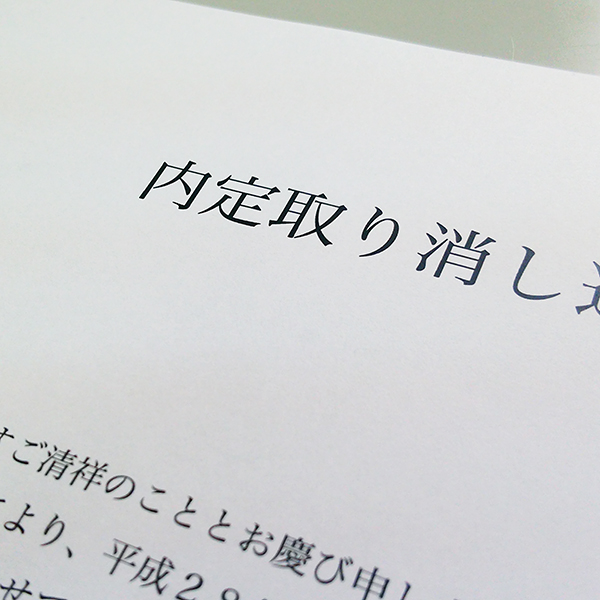 内定取り消し
すご清祥のこととお慶び申し
より、平成28
せ